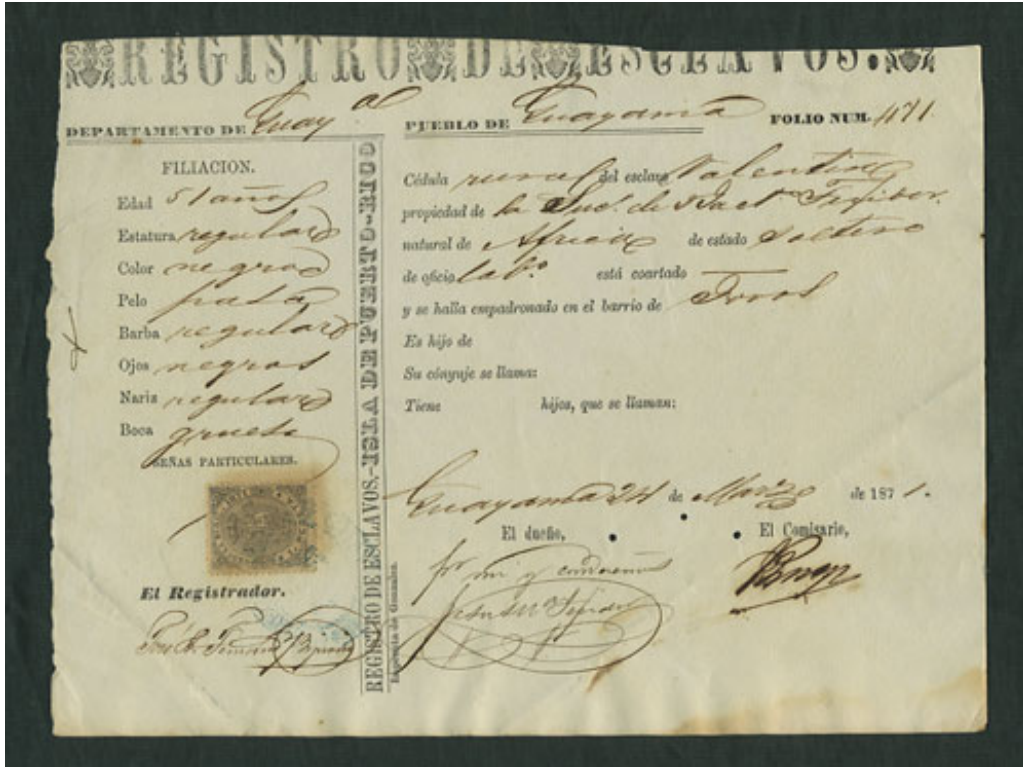 REGISTRO DE ESCLAVOS.
DEPARTAMENTO DE Guay al
PUEBLO DE Guayama
FOLIO NUM. 1171
FILIACION.
Edad 51 años
Estatura regular
Color negro
Pelo pasa
Barba regular
Ojos negros
Nariz regular
Boca gruesa
SEÑAS PARTICULARES.
El Registrador.
REGISTRO DE ESCLAVOS.-ISLA DE PUERTO-RICO
Imprenta de Gonzalez.
Cédula rural del esclavo Valentin
propiedad de la Suc.n de
natural de Africa de estado soltero
de oficio lab.o está coartado
y se halla empadronado en el barrio de
Es hijo de
Su cónyuje se llama:
Tiene hijos, que se llaman:
Guayama 24 de Marzo de 1871.
El dueño,
El Comisario,
por mi y